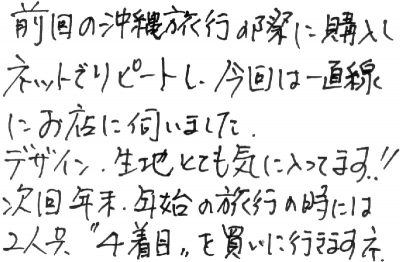 前回の沖縄旅行の際に購入し
ネットでリピートし、今回は一直線
にお店に伺いました。
デザイン、生地とても気に入ってます!!
次回年末、年始の旅行の時には
2人共、"4着目"を買いに行きますネ。